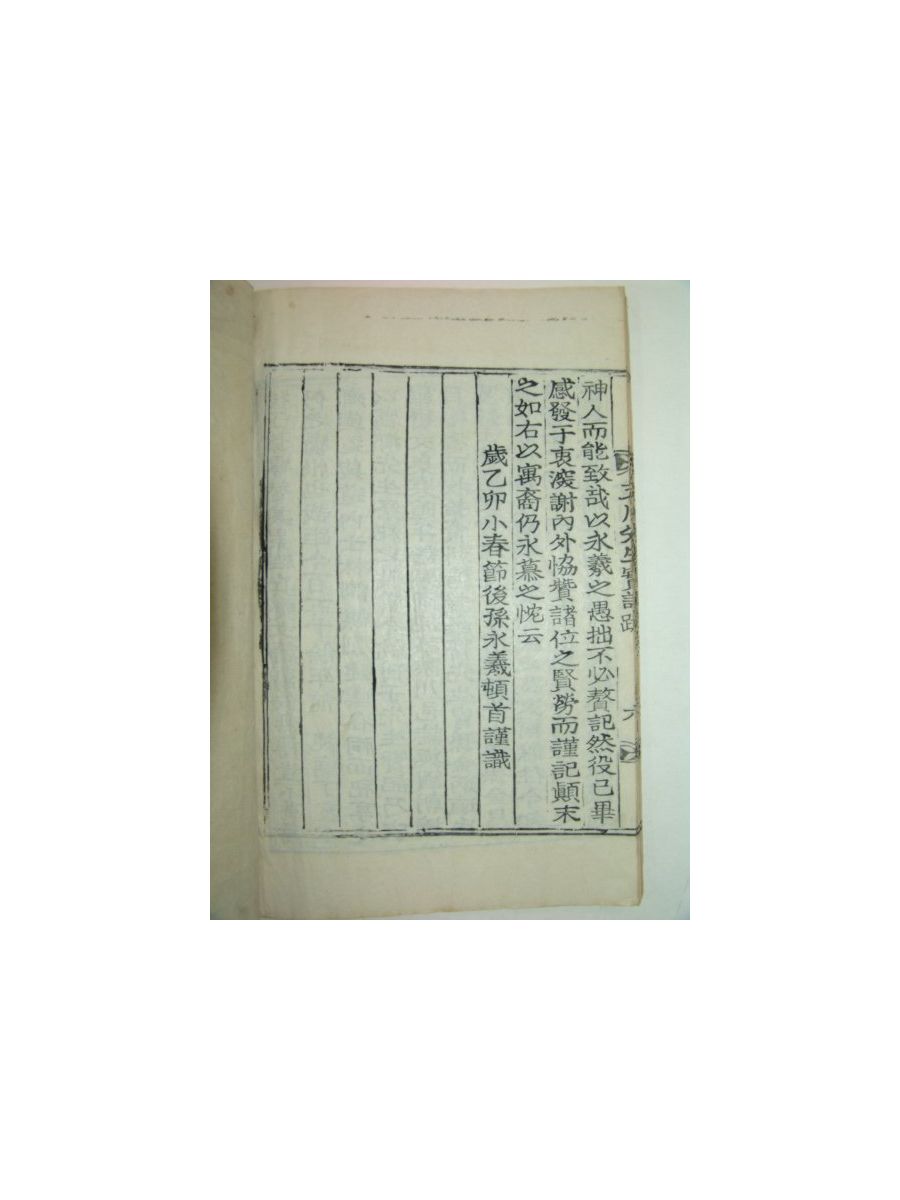 神人而能致哉以永羲之愚拙不必贅記然役已畢
感發于衷深謝內外恊贊諸位之賢勞而謹記顚末
之如右以寓裔仍永慕之忱云
歲乙卯小春節後孫永羲頓首謹識
先生實記跋
六